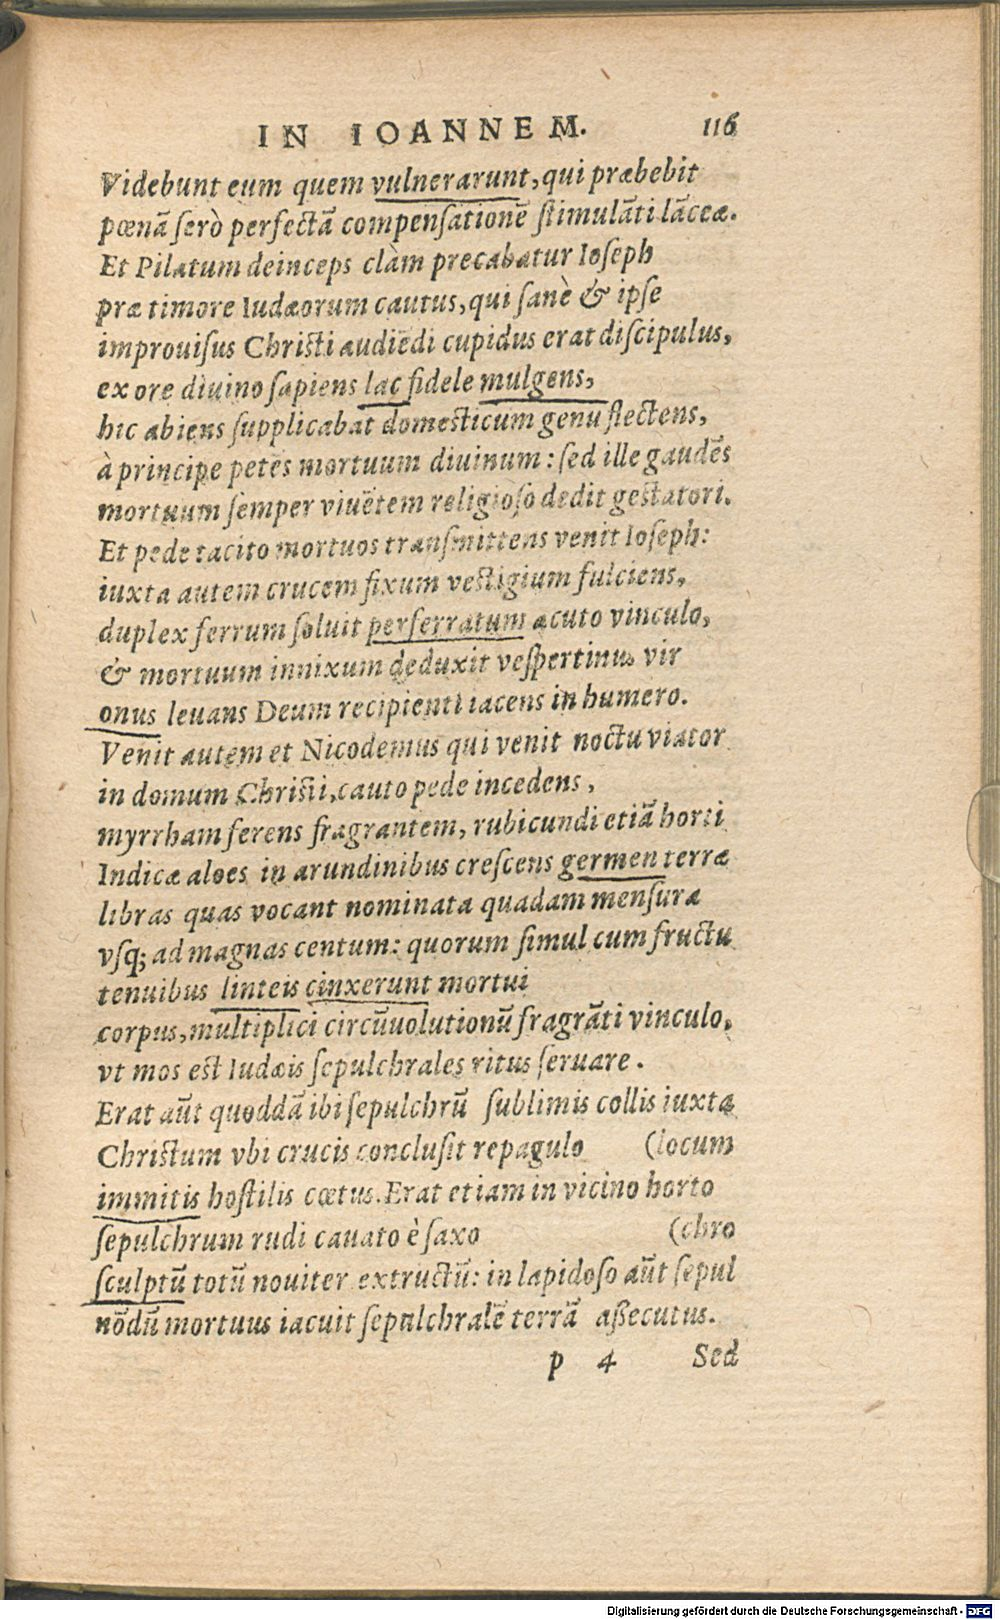 IN IOANNEM. 116
Videbunt eum quem vulnerarunt, qui præbebit
pœnā serò perfectā compensationē stimulāti lāceæ.
Et Pilatum deinceps clàm precabatur Ioseph
præ timore Iudæorum cautus, qui sanè & ipse
improuisus Christi audiēdi cupidus erat discipulus,
ex ore diuino sapiens lac fidele mulgens,
hic abiens supplicabat domesticum genu flectens,
à principe petēs mortuum diuinum: sed ille gaudēs
mortuum semper viuētem religioso dedit gestatori.
Et pede tacito mortuos transmittens venit Ioseph:
iuxta autem crucem fixum vestigium fulciens,
duplex ferrum soluit perferratum acuto vinculo,
& mortuum innixum deduxit vespertinus vir
onus leuans Deum recipienti iacens in humero.
Venit autem et Nicodemus qui venit noctu viator
in domum Christi, cauto pede incedens,
myrrham ferens fragrantem, rubicundi etiā horti
Indicæ aloes in arundinibus crescens germen terræ
libras quas vocant nominata quadam mensura
vsq; ad magnas centum: quorum simul cum fructu
tenuibus linteis cinxerunt mortui
corpus, multiplici circūuolutionū fragrāti vinculo,
vt mos est Iudæis sepulchrales ritus seruare.
Erat aūt quoddā ibi sepulchrū sublimis collis iuxta
Christum vbi crucis conclusit repagulo (locum
immitis hostilis cœtus. Erat etiam in vicino horto
sepulchrum rudi cauato è saxo (chro
sculptū totū nouiter extructū: in lapidoso aūt sepul
nōdū mortuus iacuit sepulchralē terrā aßecutus.
p 4 Sed
Digitalisierung gefördert durch die Deutsche Forschungsgemeinschaft - DFG